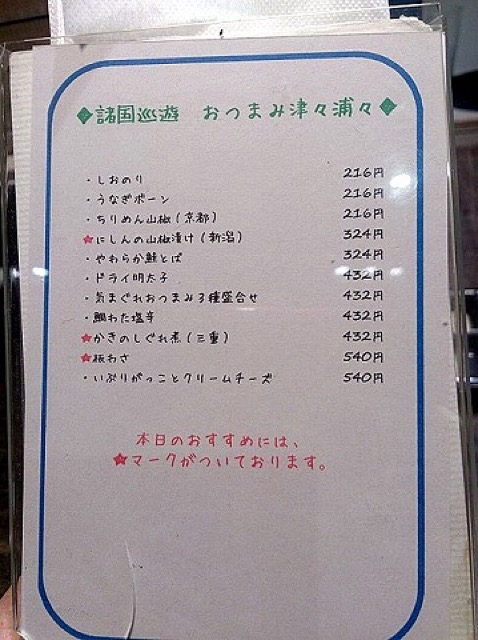 ◆諸国巡遊 おつまみ津々浦々◆
・しおのり 216円
・うなぎボーン 216円
・ちりめん山椒(京都) 216円
★にしんの山椒漬け(新潟) 324円
・やわらか鮭とば 324円
・ドライ明太子 432円
・気まぐれおつまみ3種盛合せ 432円
・鯛わた塩辛 432円
★かきのしぐれ煮(三重) 432円
★板わさ 540円
・いぶりがっことクリームチーズ 540円
本日のおすすめには、
★マークがついております。